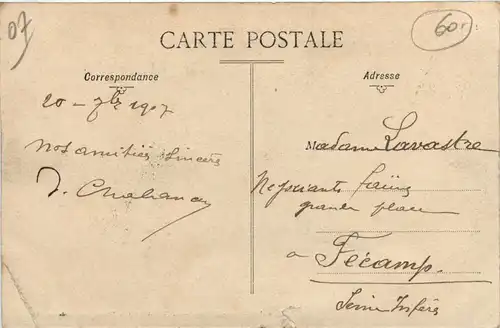 07
60
CARTE POSTALE
Correspondance
Adresse
20 - 7bre 1907
Nos amitiés sincères
Madame Lavastre
Négociante
grande place
a Fécamp.
Seine Infére